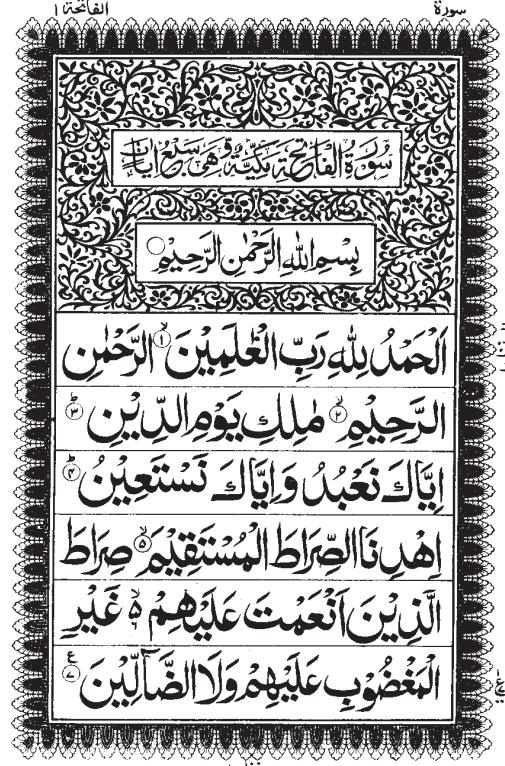 سورة الفاتحة ١
سُوْرَةُ الْفَاتِحَةِ مَكِّيَّةٌ وَّهِيَ سَبْعُ اٰيَاتٍ
بِسْمِ اللّٰهِ الرَّحْمٰنِ الرَّحِيْمِ
اَلْحَمْدُ لِلّٰهِ رَبِّ الْعٰلَمِيْنَ ۙ‏﴿١﴾ الرَّحْمٰنِ
الرَّحِيْمِ ۙ‏﴿٢﴾ مٰلِكِ يَوْمِ الدِّيْنِ ؕ‏﴿٣﴾
اِيَّاكَ نَعْبُدُ وَاِيَّاكَ نَسْتَعِيْنُ ؕ‏﴿٤﴾
اِهْدِنَا الصِّرَاطَ الْمُسْتَقِيْمَ ۙ‏﴿٥﴾ صِرَاطَ
الَّذِيْنَ اَنْعَمْتَ عَلَيْهِمْ ۙ۬ۙ غَيْرِ
الْمَغْضُوْبِ عَلَيْهِمْ وَلَا الضَّآلِّيْنَ ‏﴿٧﴾ ع